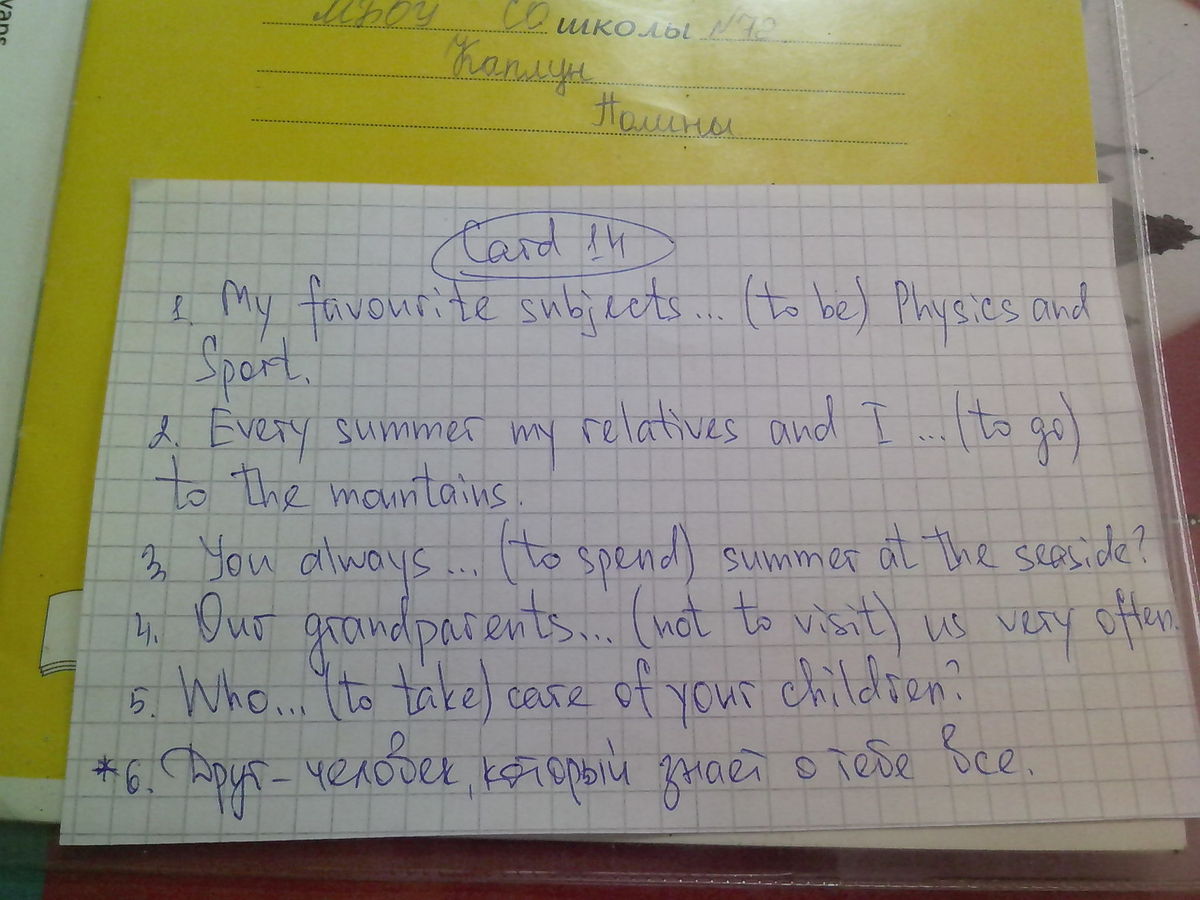 МБОУ СО школы №72
Каплун
Полины
vans
Card 14
1. My favourite subjects... (to be) Physics and
Sport.
2. Every summer my relatives and I ... (to go)
to the mountains.
3. You always... (to spend) summer at the seaside?
4. Our grandparents... (not to visit) us very often.
5. Who... (to take) care of your children?
*6. Друг - человек, который знает о тебе все.